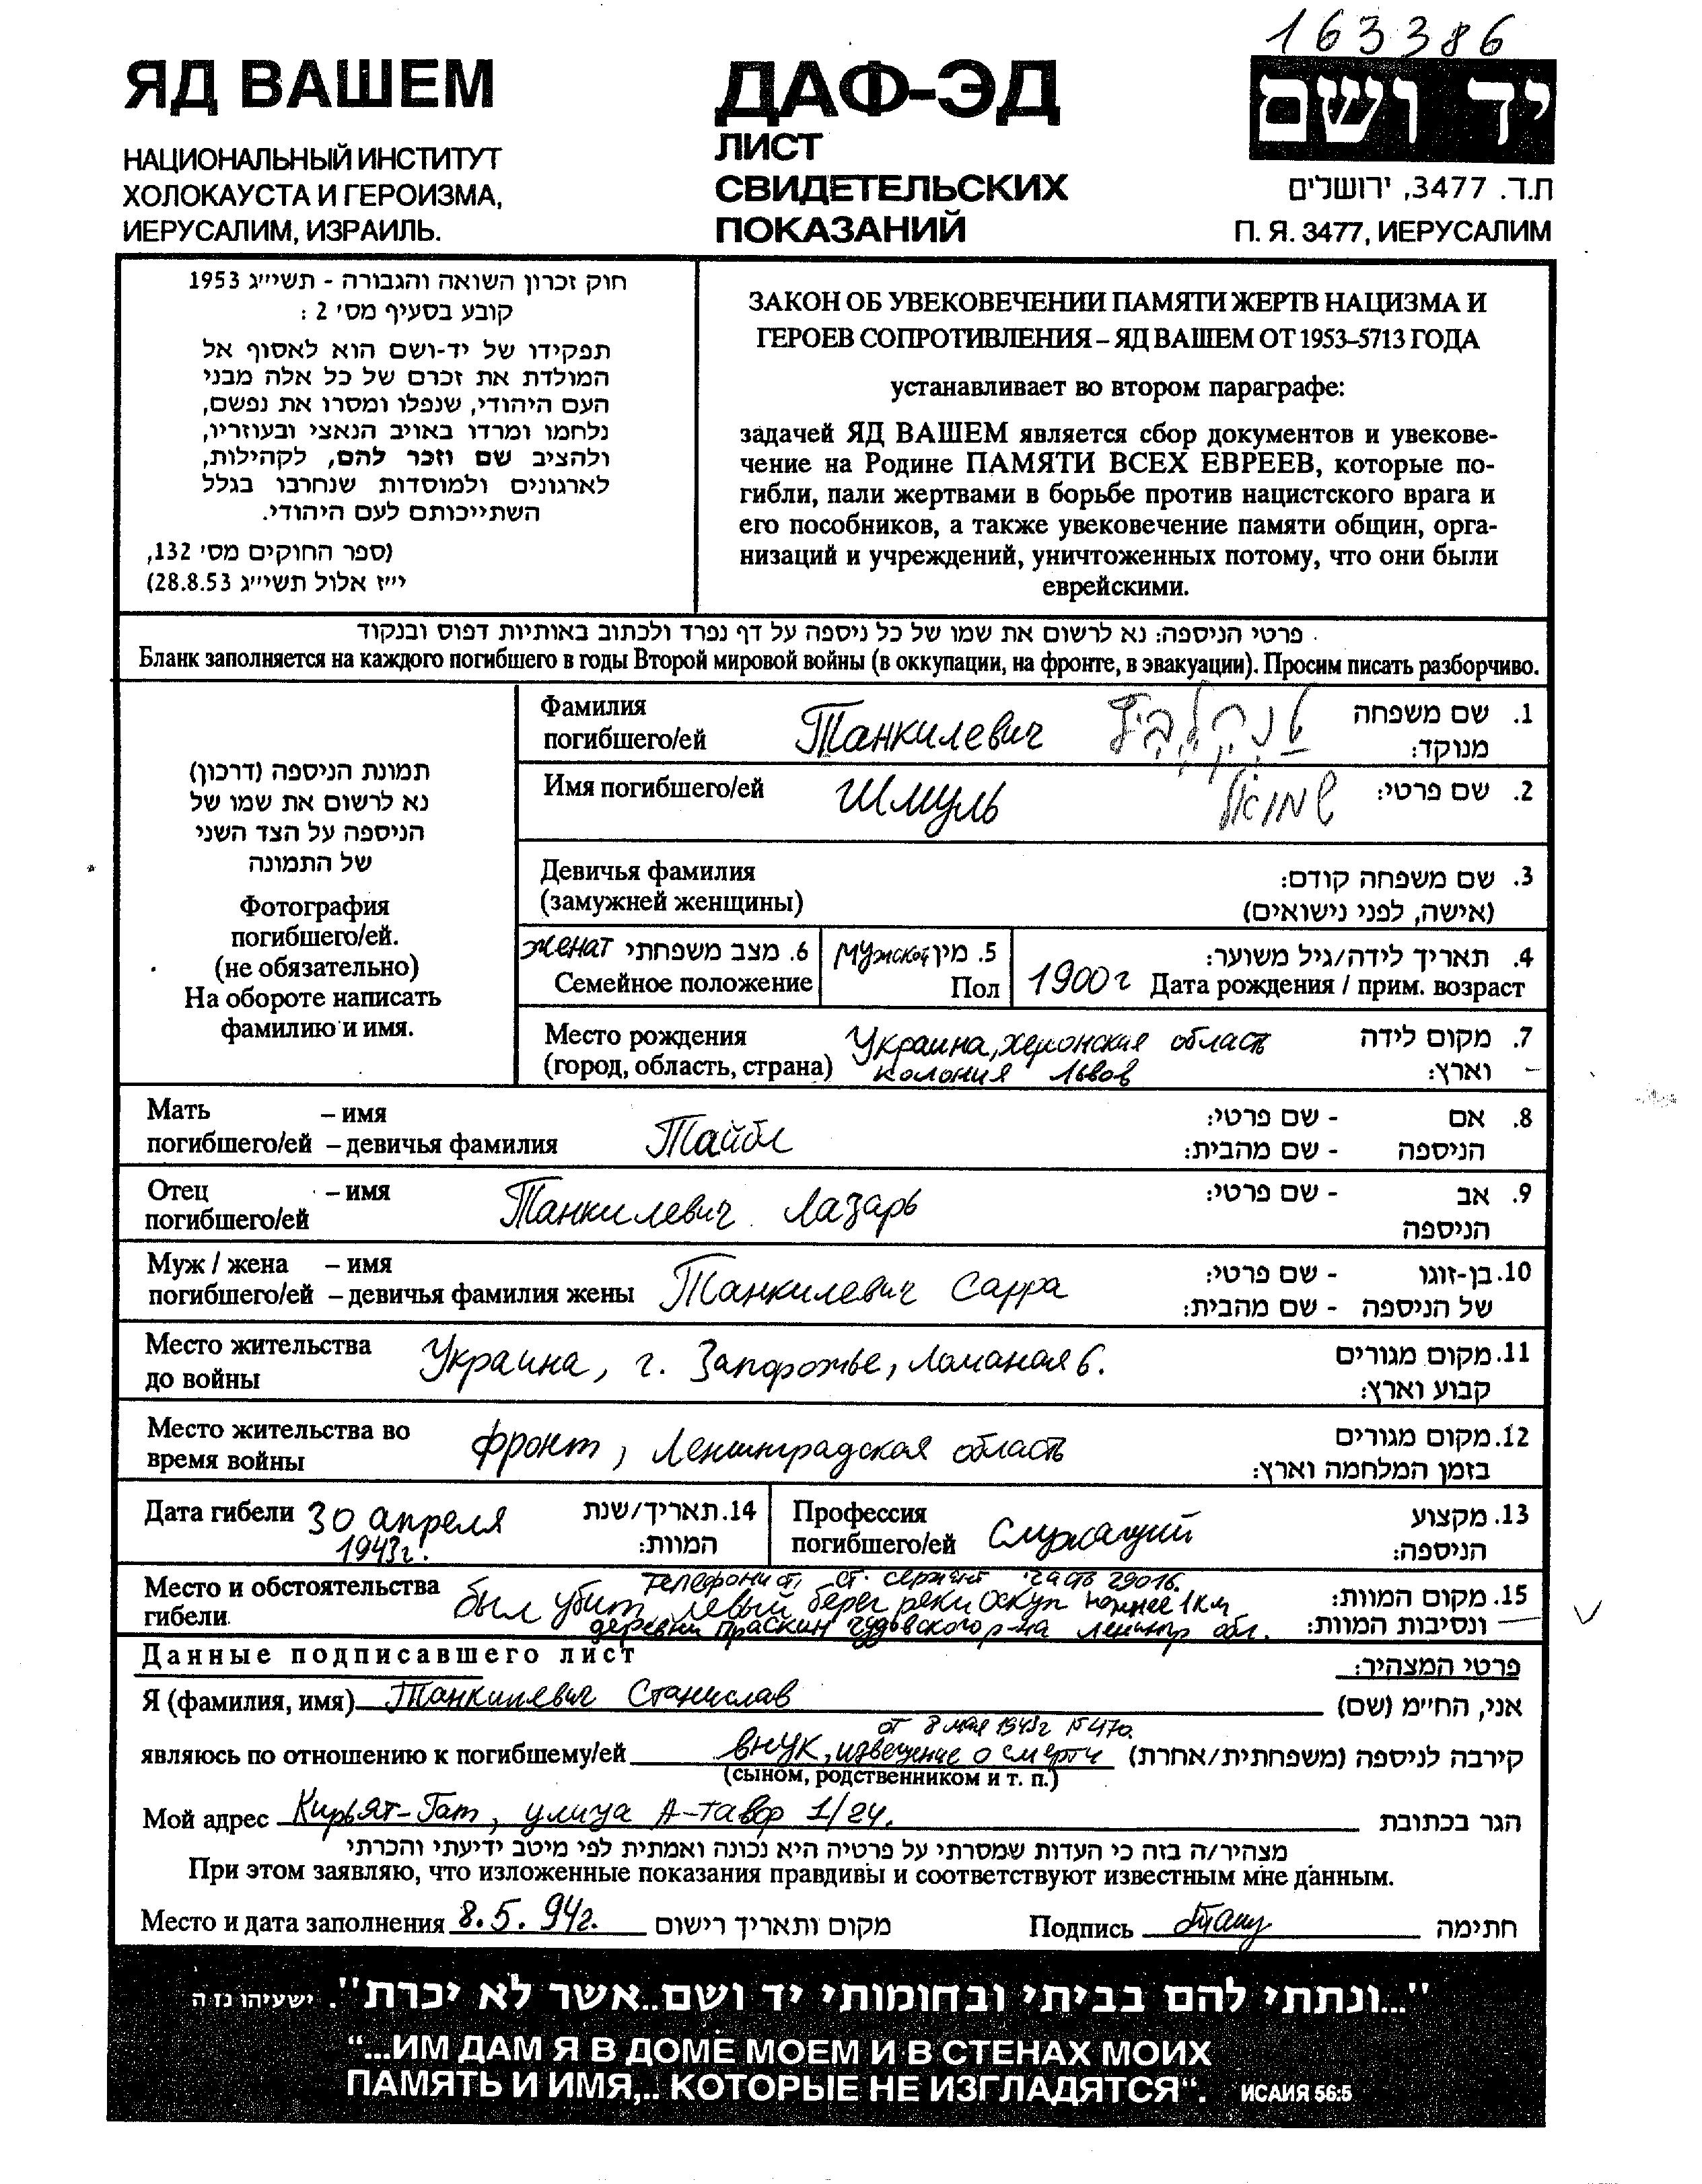 163386
ЯД ВАШЕМ
НАЦИОНАЛЬНЫЙ ИНСТИТУТ
ХОЛОКАУСТА И ГЕРОИЗМА,
ИЕРУСАЛИМ, ИЗРАИЛЬ.
ДАФ-ЭД
ЛИСТ
СВИДЕТЕЛЬСКИХ
ПОКАЗАНИЙ
יד ושם
ת.ד. 3477, ירושלים
П. Я. 3477, ИЕРУСАЛИМ
חוק זכרון השואה והגבורה - תשי״ג 1953
קובע בסעיף מס׳ 2 :
תפקידו של יד-ושם הוא לאסוף אל
המולדת את זכרם של כל אלה מבני
העם היהודי, שנפלו ומסרו את נפשם,
נלחמו ומרדו באויב הנאצי ובעוזריו,
ולהציב שם וזכר להם, לקהילות,
לארגונים ולמוסדות שנחרבו בגלל
השתייכותם לעם היהודי.
(ספר החוקים מס׳ 132,
י״ז אלול תשי״ג 28.8.53)
ЗАКОН ОБ УВЕКОВЕЧЕНИИ ПАМЯТИ ЖЕРТВ НАЦИЗМА И
ГЕРОЕВ СОПРОТИВЛЕНИЯ – ЯД ВАШЕМ ОТ 1953–5713 ГОДА
устанавливает во втором параграфе:
задачей ЯД ВАШЕМ является сбор документов и увекове-
чение на Родине ПАМЯТИ ВСЕХ ЕВРЕЕВ, которые по-
гибли, пали жертвами в борьбе против нацистского врага и
его пособников, а также увековечение памяти общин, орга-
низаций и учреждений, уничтоженных потому, что они были
еврейскими.
פרטי הניספה: נא לרשום את שמו של כל ניספה על דף נפרד ולכתוב באותיות דפוס ובנקוד
Бланк заполняется на каждого погибшего в годы Второй мировой войны (в оккупации, на фронте, в эвакуации). Просим писать разборчиво.
תמונת הניספה (דרכון)
נא לרשום את שמו של
הניספה על הצד השני
של התמונה
Фотография
погибшего/ей.
(не обязательно)
На обороте написать
фамилию и имя.
Фамилия
погибшего/ей Танкилевич טנקילביץ
1. שם משפחה
מנוקד:
Имя погибшего/ей Шмуль שמואל 2. שם פרטי:
Девичья фамилия
(замужней женщины)
3. שם משפחה קודם:
(אישה, לפני נישואים)
женат 6. מצב משפחתי
Семейное положение
мужской 5. מין
Пол
4. תאריך לידה/גיל משוער:
1900 г Дата рождения / прим. возраст
Место рождения
(город, область, страна)
Украина, херсонская область
колония Львов
7. מקום לידה
וארץ:
Мать – имя
погибшего/ей – девичья фамилия
Тайбл
8. אם - שם פרטי:
הניספה - שם מהבית:
Отец – имя
погибшего/ей
Танкилевич Лазарь
9. אב - שם פרטי:
הניספה
Муж / жена – имя
погибшего/ей – девичья фамилия жены
Танкилевич Сарра
10. בן-זוגו - שם פרטי:
של הניספה - שם מהבית:
Место жительства
до войны
Украина, г. Запорожье, Ломаная 6.
11. מקום מגורים
קבוע וארץ:
Место жительства во
время войны
фронт, Ленинградская область
12. מקום מגורים
בזמן המלחמה וארץ:
Дата гибели 30 апреля
1943г.
14. תאריך/שנת
המוות:
Профессия
погибшего/ей Служащий
13. מקצוע
הניספה:
Место и обстоятельства
гибели
телефонист, ст. сержант часть 29016.
был убит левый берег реки Оскуп южнее 1км
деревни Праскин Чудовского р-на ленингр обл.
15. מקום המוות:
ונסיבות המוות:
Данные подписавшего лист
פרטי המצהיר:
Я (фамилия, имя) Танкилевич Станислав אני, החי״מ (שם)
от 8 мая 1943г N 470.
являюсь по отношению к погибшему/ей внук, извещение о смерти קירבה לניספה (משפחתית/אחרת)
(сыном, родственником и т. п.)
Мой адрес Кирьят-Гат, улица А-тавор 1/24. הגר בכתובת
מצהיר/ה בזה כי העדות שמסרתי על פרטיה היא נכונה ואמתית לפי מיטב ידיעתי והכרתי
При этом заявляю, что изложенные показания правдивы и соответствуют известным мне данным.
Место и дата заполнения 8.5.94г. מקום ותאריך רישום Подпись חתימה
"...ונתתי להם בביתי ובחומותי יד ושם..אשר לא יכרת". ישעיהו נו ה
“...ИМ ДАМ Я В ДОМЕ МОЕМ И В СТЕНАХ МОИХ
ПАМЯТЬ И ИМЯ,.. КОТОРЫЕ НЕ ИЗГЛАДЯТСЯ“. ИСАИЯ 56:5